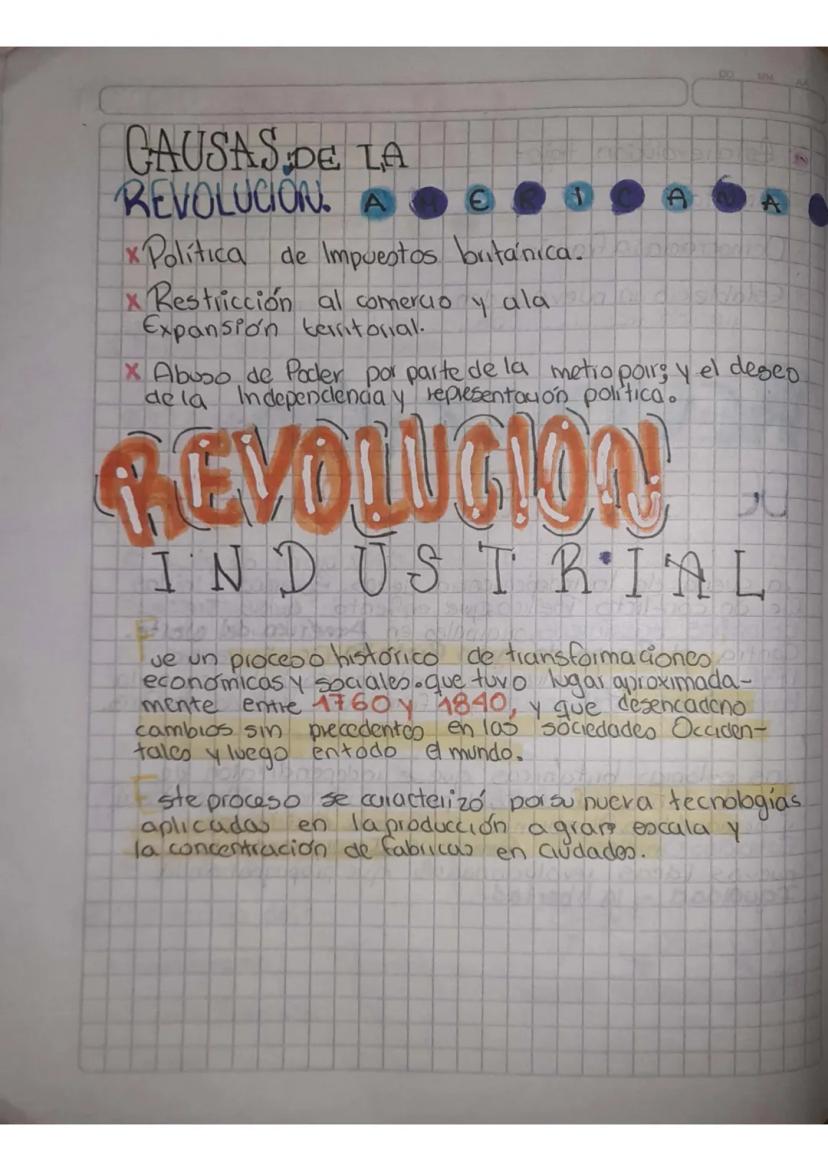 DD MM AA
CAUSAS DE LA
REVOLUCIÓN. AMERICANA
x Política de Impuestos británica.
x Restricción al comercio y ala
Expansión territorial.
x Abuso de Poder por parte de la metropolis y el deseo
de la Independencia y representación política.
REVOLUCION
INDUSTRIAL
Fue un proceso histórico de transformaciones
económicas y sociales. que tuvo lugar aproximada-
mente entre 1760 y 1840, y que desencadeno
cambios sin precedentes en las sociedades Occiden-
tales y luego entodo el mundo.
Este proceso se caracterizó por su nueva tecnologías
aplicadas en la producción a gran escala y
la concentración de fabricas en ciudades.